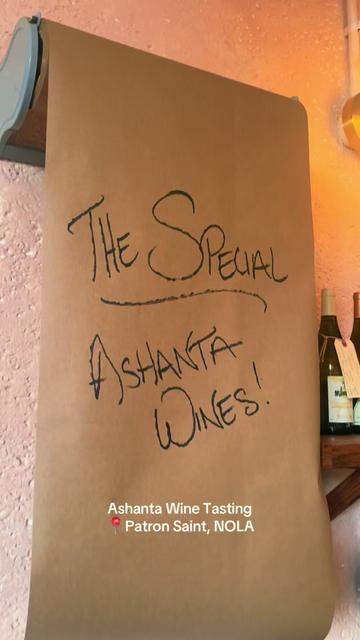 THE SPECIAL
ASHANTA
WINES!
Ashanta Wine Tasting
📍Patron Saint, NOLA